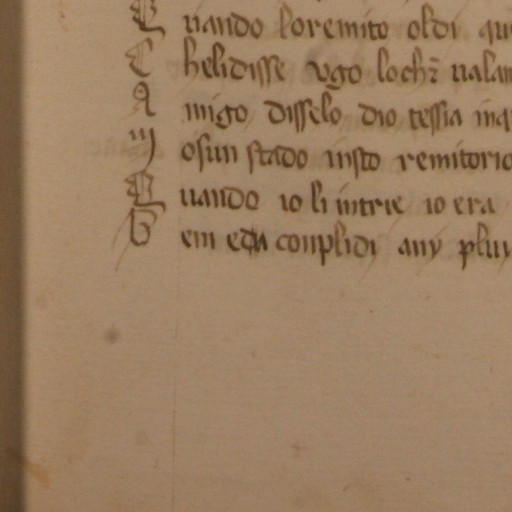 Q uando loremito oldi qu
C helidisse vgo lochr̄ ualan
A migo disselo dio tessia inq
M osun stado insto remitorio
Q uando io li intrie io era
B em eda conplidi any plui